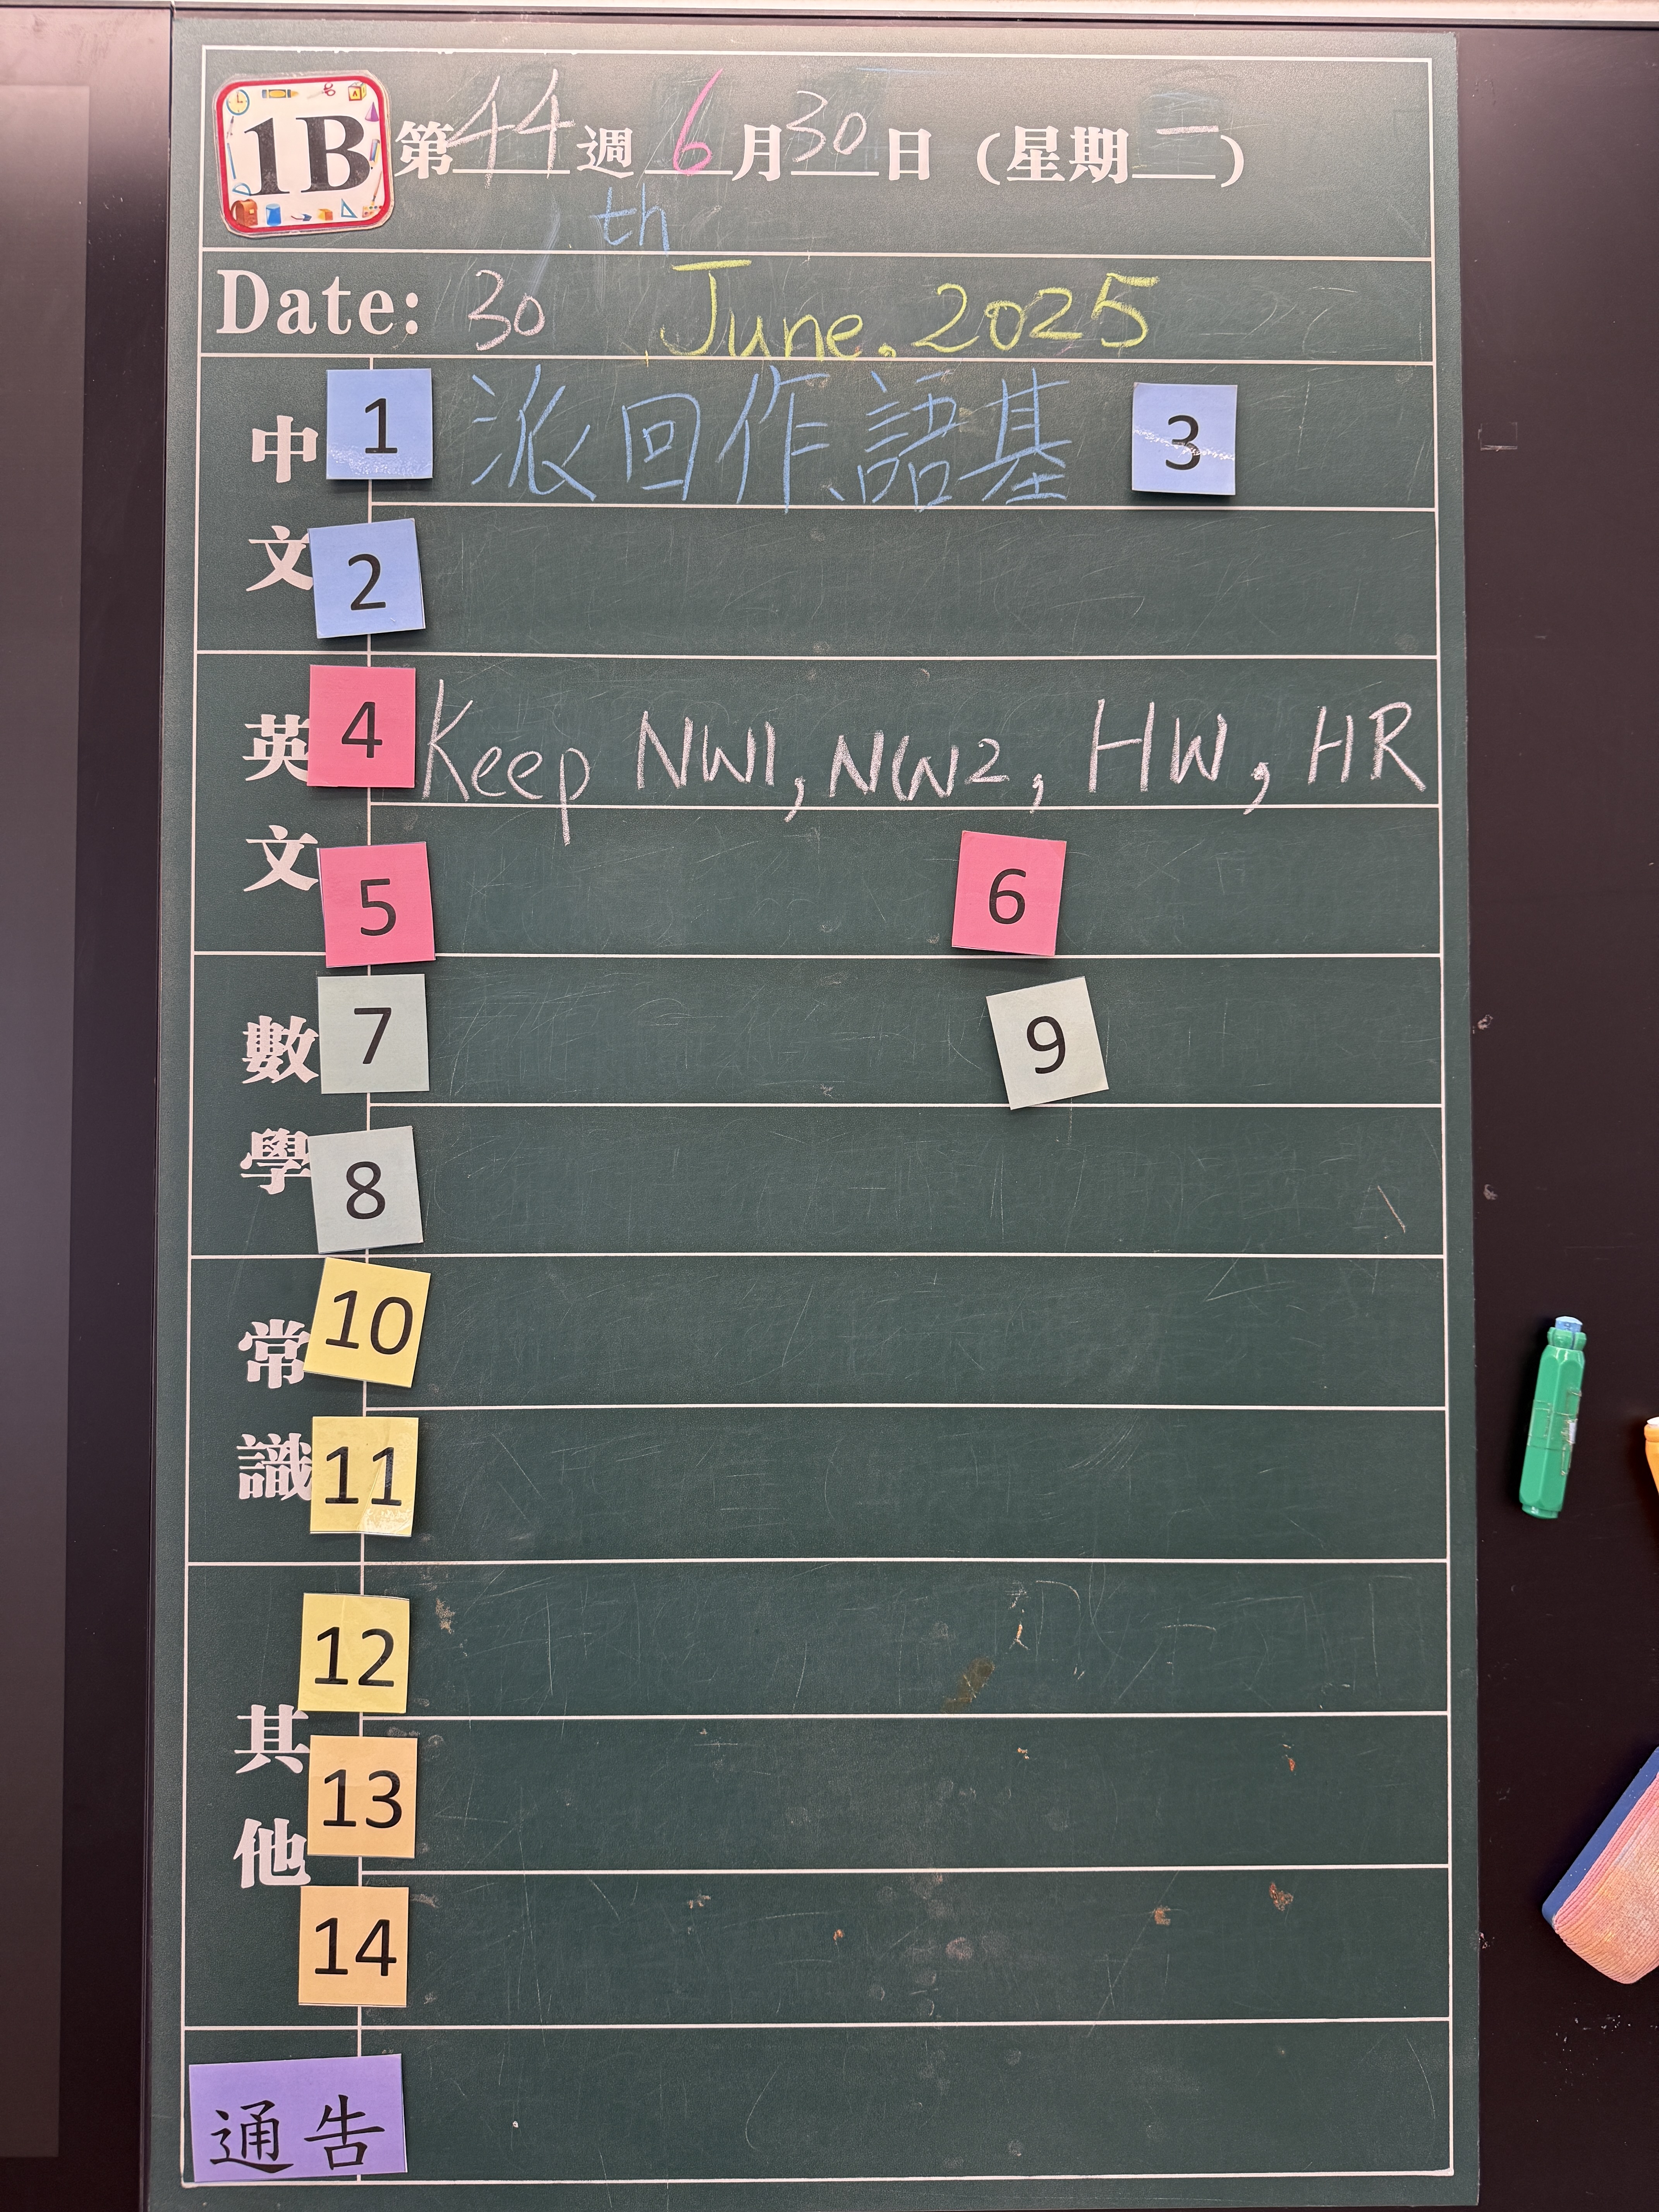 1B 第44週 6月30日 (星期一)
th
Date: 30 June. 2025
中文
1 派回作、語基 3
2
英文
4 Keep NW1, NW2, HW, HR
5 6
數學
7 9
8
常識
10
11
其他
12
13
14
通告